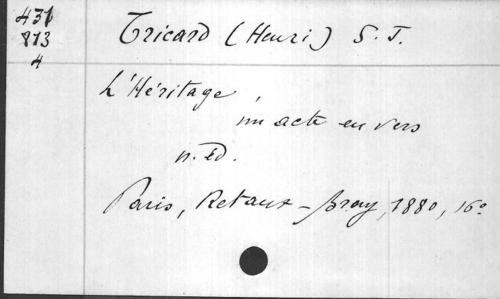 431
813
4
Tricard (Henri) S. J.
L'Héritage
un acte en vers
n. Ed.
Paris, Retaux-Bray, 1880, 16°